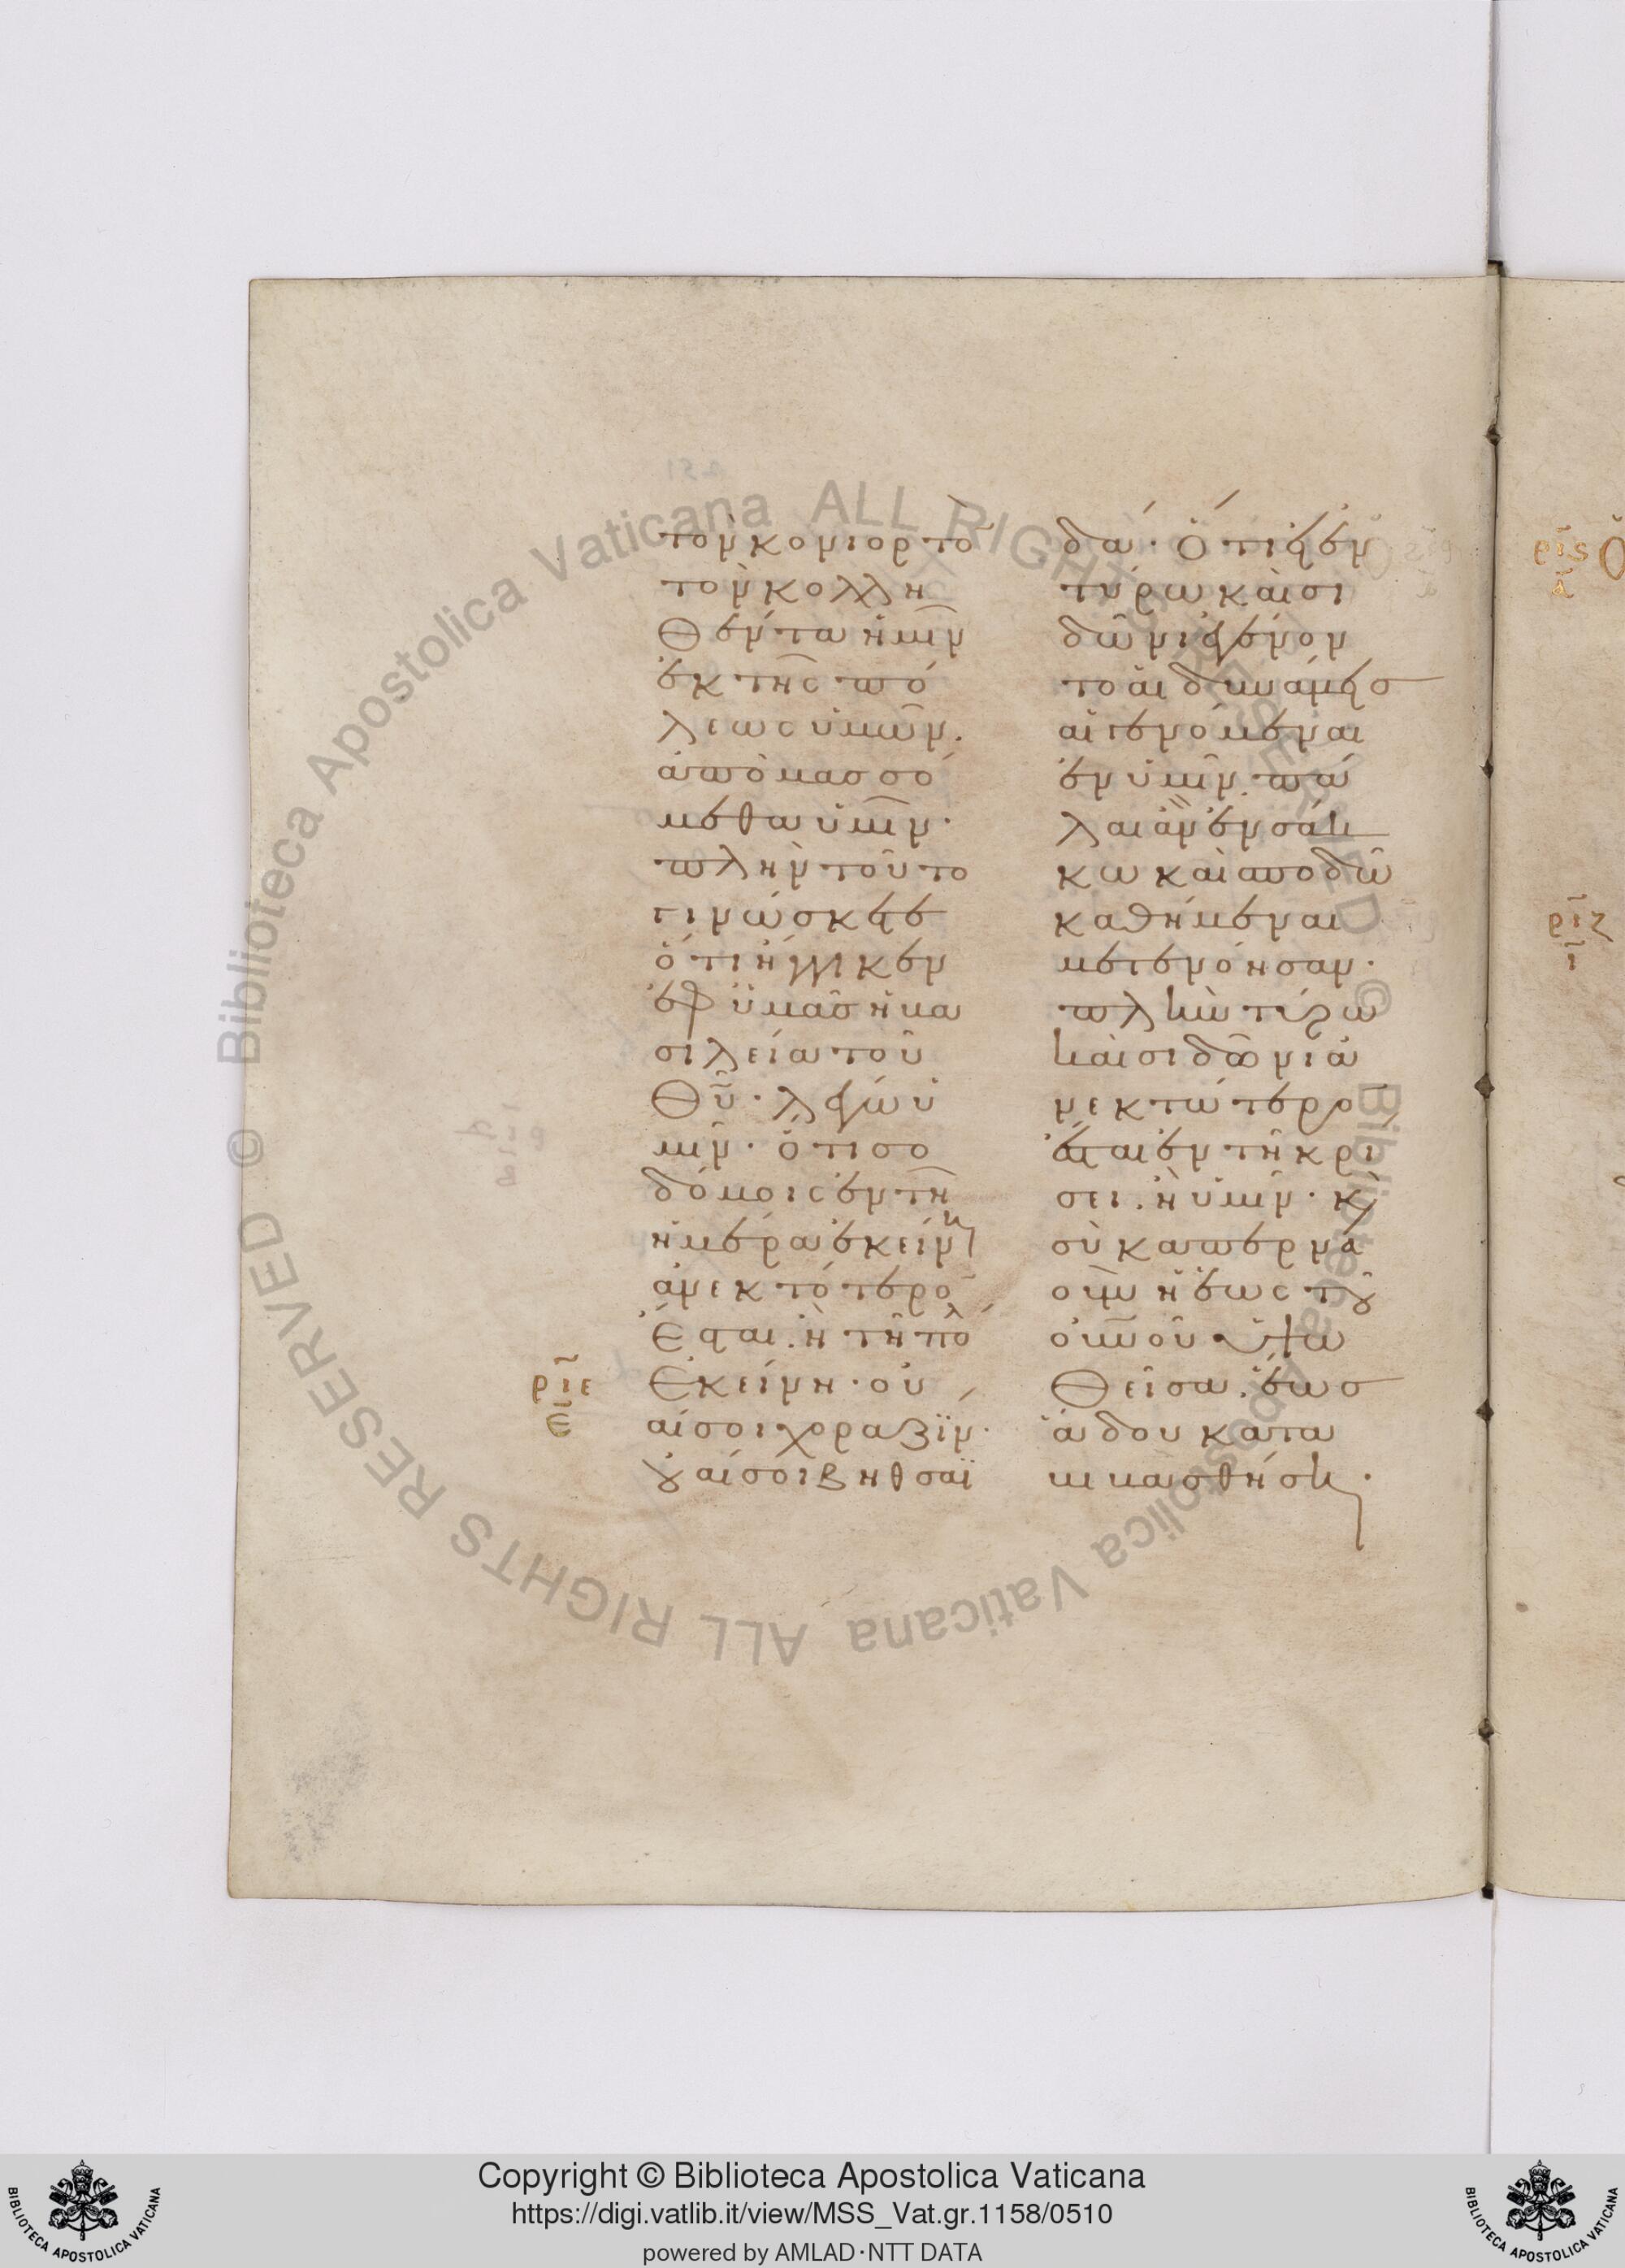 τὸν κονιορτὸ
τὸν κολλη
θέντα ἡμῖν
ἐκ τῆς πό
λεως ὑμῶν.
ἀπομασσό
μεθα ὑμῖν·
πλὴν τοῦτο
γινώσκετε
ὅτι ἤγγικεν
ἐφ ὑμᾶσ ἡ βα
σιλεία τοῦ
θῦ· λέγω ὑ
μῖν· ὅτι σο
δόμοις ἐν τῆ
ἡμέρα ἐκείνη
ἀνεκτότερο
ἔσται. ἢ τῆ πόλ
ἐκείνη· οὐ
αί σοι χοραζϊν·
οὐαί σοι βηθσαϊ
δά· Ὅτι εἰ ἐν
τύρω καὶ σι
δῶνι ἐγένον
το αἱ δυνάμεισ
αἱ γενόμεναι
ἐν ὑμῖν. πά
λαι ἂν ἐν σάκ
κω καὶ σποδῶ
καθήμεναι
μετενόησαν·
πλὴν τύρω
καὶ σιδῶνι ἀ
νεκτώτερο
ἔσται ἐν τῆ κρί
σει. ἢ ὑμῖν· κ
σὺ καπερνα
οὺμ ἡ ἕως τοῦ
οὐνοῦ ὑψω
θεῖσα. ἕωσ
ἅδου κατα
βιβασθήση·
ριε
ε
ρις
α
Ὁ
ριζ
ι
Copyright © Biblioteca Apostolica Vaticana
https://digi.vatlib.it/view/MSS_Vat.gr.1158/0510
powered by AMLAD·NTT DATA
BIBLIOTECA APOSTOLICA VATICANA
BIBLIOTECA APOSTOLICA VATICANA
© Biblioteca Apostolica Vaticana ALL RIGHTS RESERVED © Biblioteca Apostolica Vaticana ALL RIGHTS RESERVED